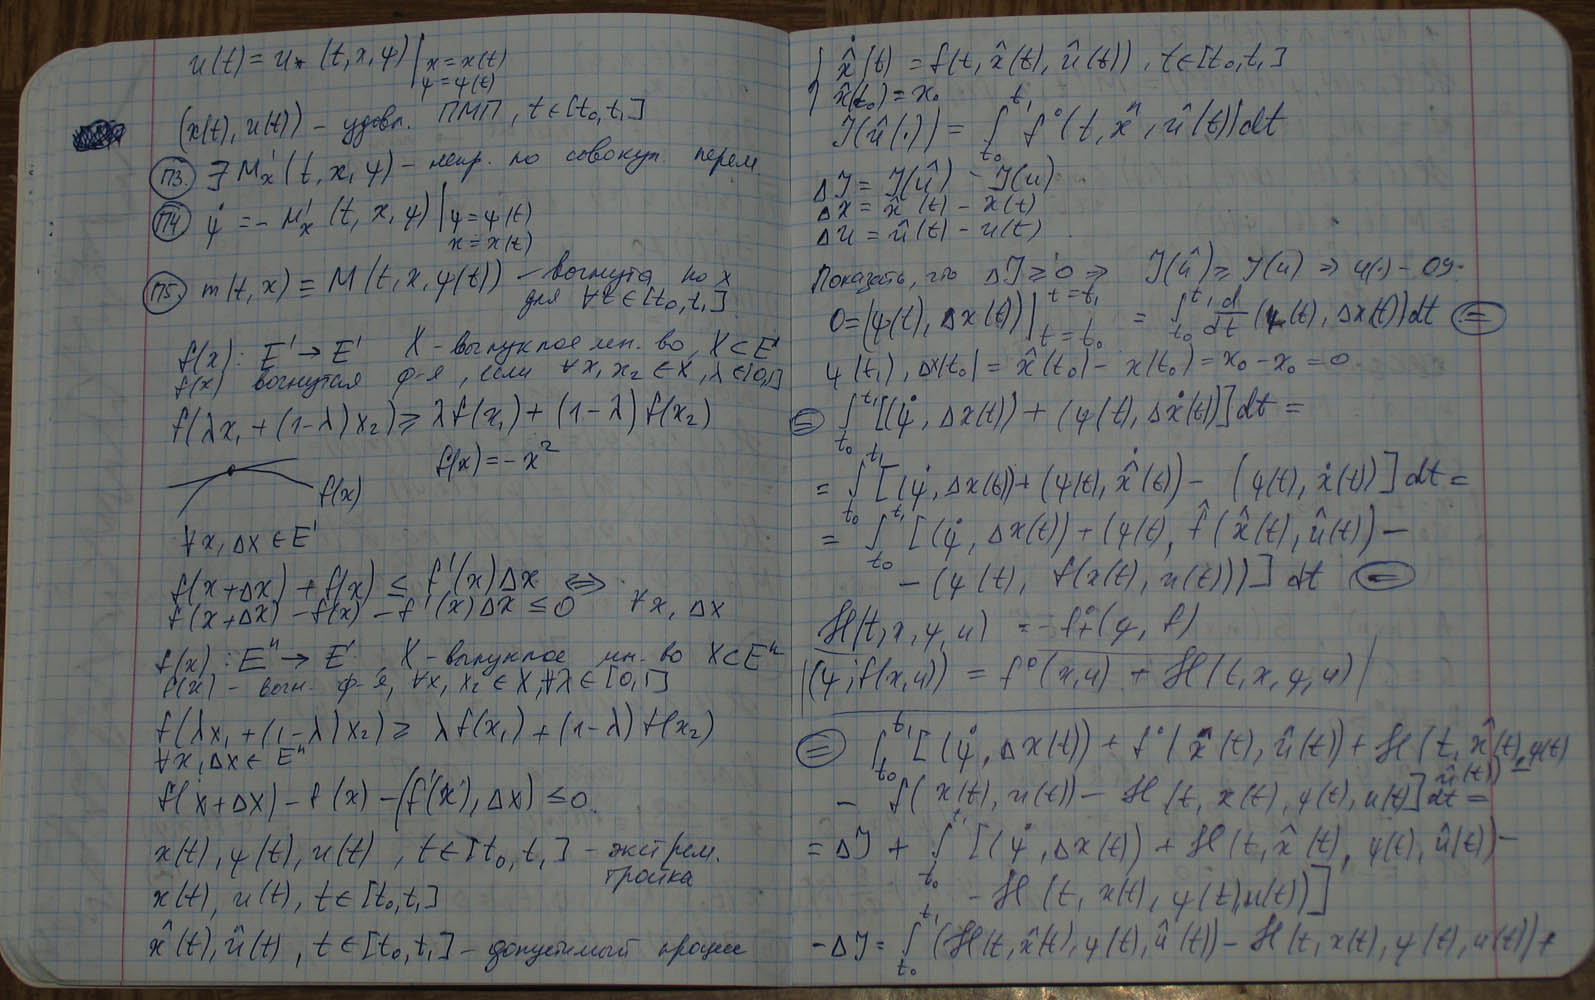 u(t) = u* (t, x, ψ) | x = x(t)
ψ = ψ(t)
(x(t), u(t)) – удовл. ПМП, t ∈ [t₀, t₁]
П3. ∃ M'ₓ(t, x, ψ) – непр. по совокуп. перем.
П4. ψ̇ = – M'ₓ (t, x, ψ) | ψ = ψ(t)
x = x(t)
П5. m(t, x) ≡ M(t, x, ψ(t)) – вогнута по x
для ∀t ∈ [t₀, t₁]
f(x): E¹ → E¹ X – выпуклое мн. во, X ⊂ E¹
f(x) вогнутая ф-я, если ∀x₁ x₂ ∈ X, λ ∈ [0,1]
f(λx₁ + (1–λ)x₂) ≥ λf(x₁) + (1–λ) f(x₂)
f(x) = – x²
f(x)
∀x, Δx ∈ E¹
f(x+Δx) + f(x) ≤ f'(x)Δx ⇔
f(x+Δx) – f(x) – f'(x)Δx ≤ 0 ∀x, Δx
f(x): Eⁿ → E¹, X – выпуклое мн. во X ⊂ Eⁿ
f(x) – вогн. ф-я, ∀x₁ x₂ ∈ X, ∀λ ∈ [0,1]
f(λx₁ + (1–λ)x₂) ≥ λf(x₁) + (1–λ) f(x₂)
∀x, Δx ∈ Eⁿ
f(x+Δx) – f(x) – (f'(x), Δx) ≤ 0
x(t), ψ(t), u(t), t ∈ [t₀, t₁] – экстрем.
тройка
x(t), u(t), t ∈ [t₀, t₁]
x̂(t), û(t), t ∈ [t₀, t₁] – допустимый процесс
{ x̂̇(t) = f(t, x̂(t), û(t)), t ∈ [t₀, t₁]
x̂(t₀) = x₀
J(û(·)) = ∫ₜ₀ᵗ¹ f⁰(t, x̂, û(t)) dt
ΔJ = J(û) – J(u)
Δx = x̂(t) – x(t)
Δu = û(t) – u(t)
Показать, что ΔJ ≥ 0 ⇒ J(û) ≥ J(u) ⇒ u(·) – ОУ.
0 = (ψ(t), Δx(t)) |ₜ₌ₜ₀ᵗ⁼ᵗ¹ = ∫ₜ₀ᵗ¹ d/dt (ψ(t), Δx(t)) dt =
ψ(t₁), Δx(t₀) = x̂(t₀) – x(t₀) = x₀ – x₀ = 0
= ∫ₜ₀ᵗ¹ [(ψ̇, Δx(t)) + (ψ(t), Δẋ(t))] dt =
= ∫ₜ₀ᵗ¹ [(ψ̇, Δx(t)) + (ψ(t), x̂̇(t)) – (ψ(t), ẋ(t))] dt =
= ∫ₜ₀ᵗ¹ [(ψ̇, Δx(t)) + (ψ(t), f̂(x̂(t), û(t)) –
– (ψ(t), f(x(t), u(t)))] dt =
ℋ(t, x, ψ, u) = –f⁰ + (ψ, f)
(ψ, f(x,u)) = f⁰(x,u) + ℋ(t, x, ψ, u)
= ∫ₜ₀ᵗ¹ [(ψ̇, Δx(t)) + f⁰(x̂(t), û(t)) + ℋ(t, x̂(t), ψ(t)
û(t)) –
– f(x(t), u(t)) – ℋ(t, x(t), ψ(t), u(t)] dt =
= ΔJ + ∫ₜ₀ᵗ¹ [(ψ̇, Δx(t)) + ℋ(t, x̂(t), ψ(t), û(t)) –
– ℋ(t, x(t), ψ(t), u(t))]
–ΔJ = ∫ₜ₀ᵗ¹ (ℋ(t, x̂(t), ψ(t), û(t)) – ℋ(t, x(t), ψ(t), u(t)) +